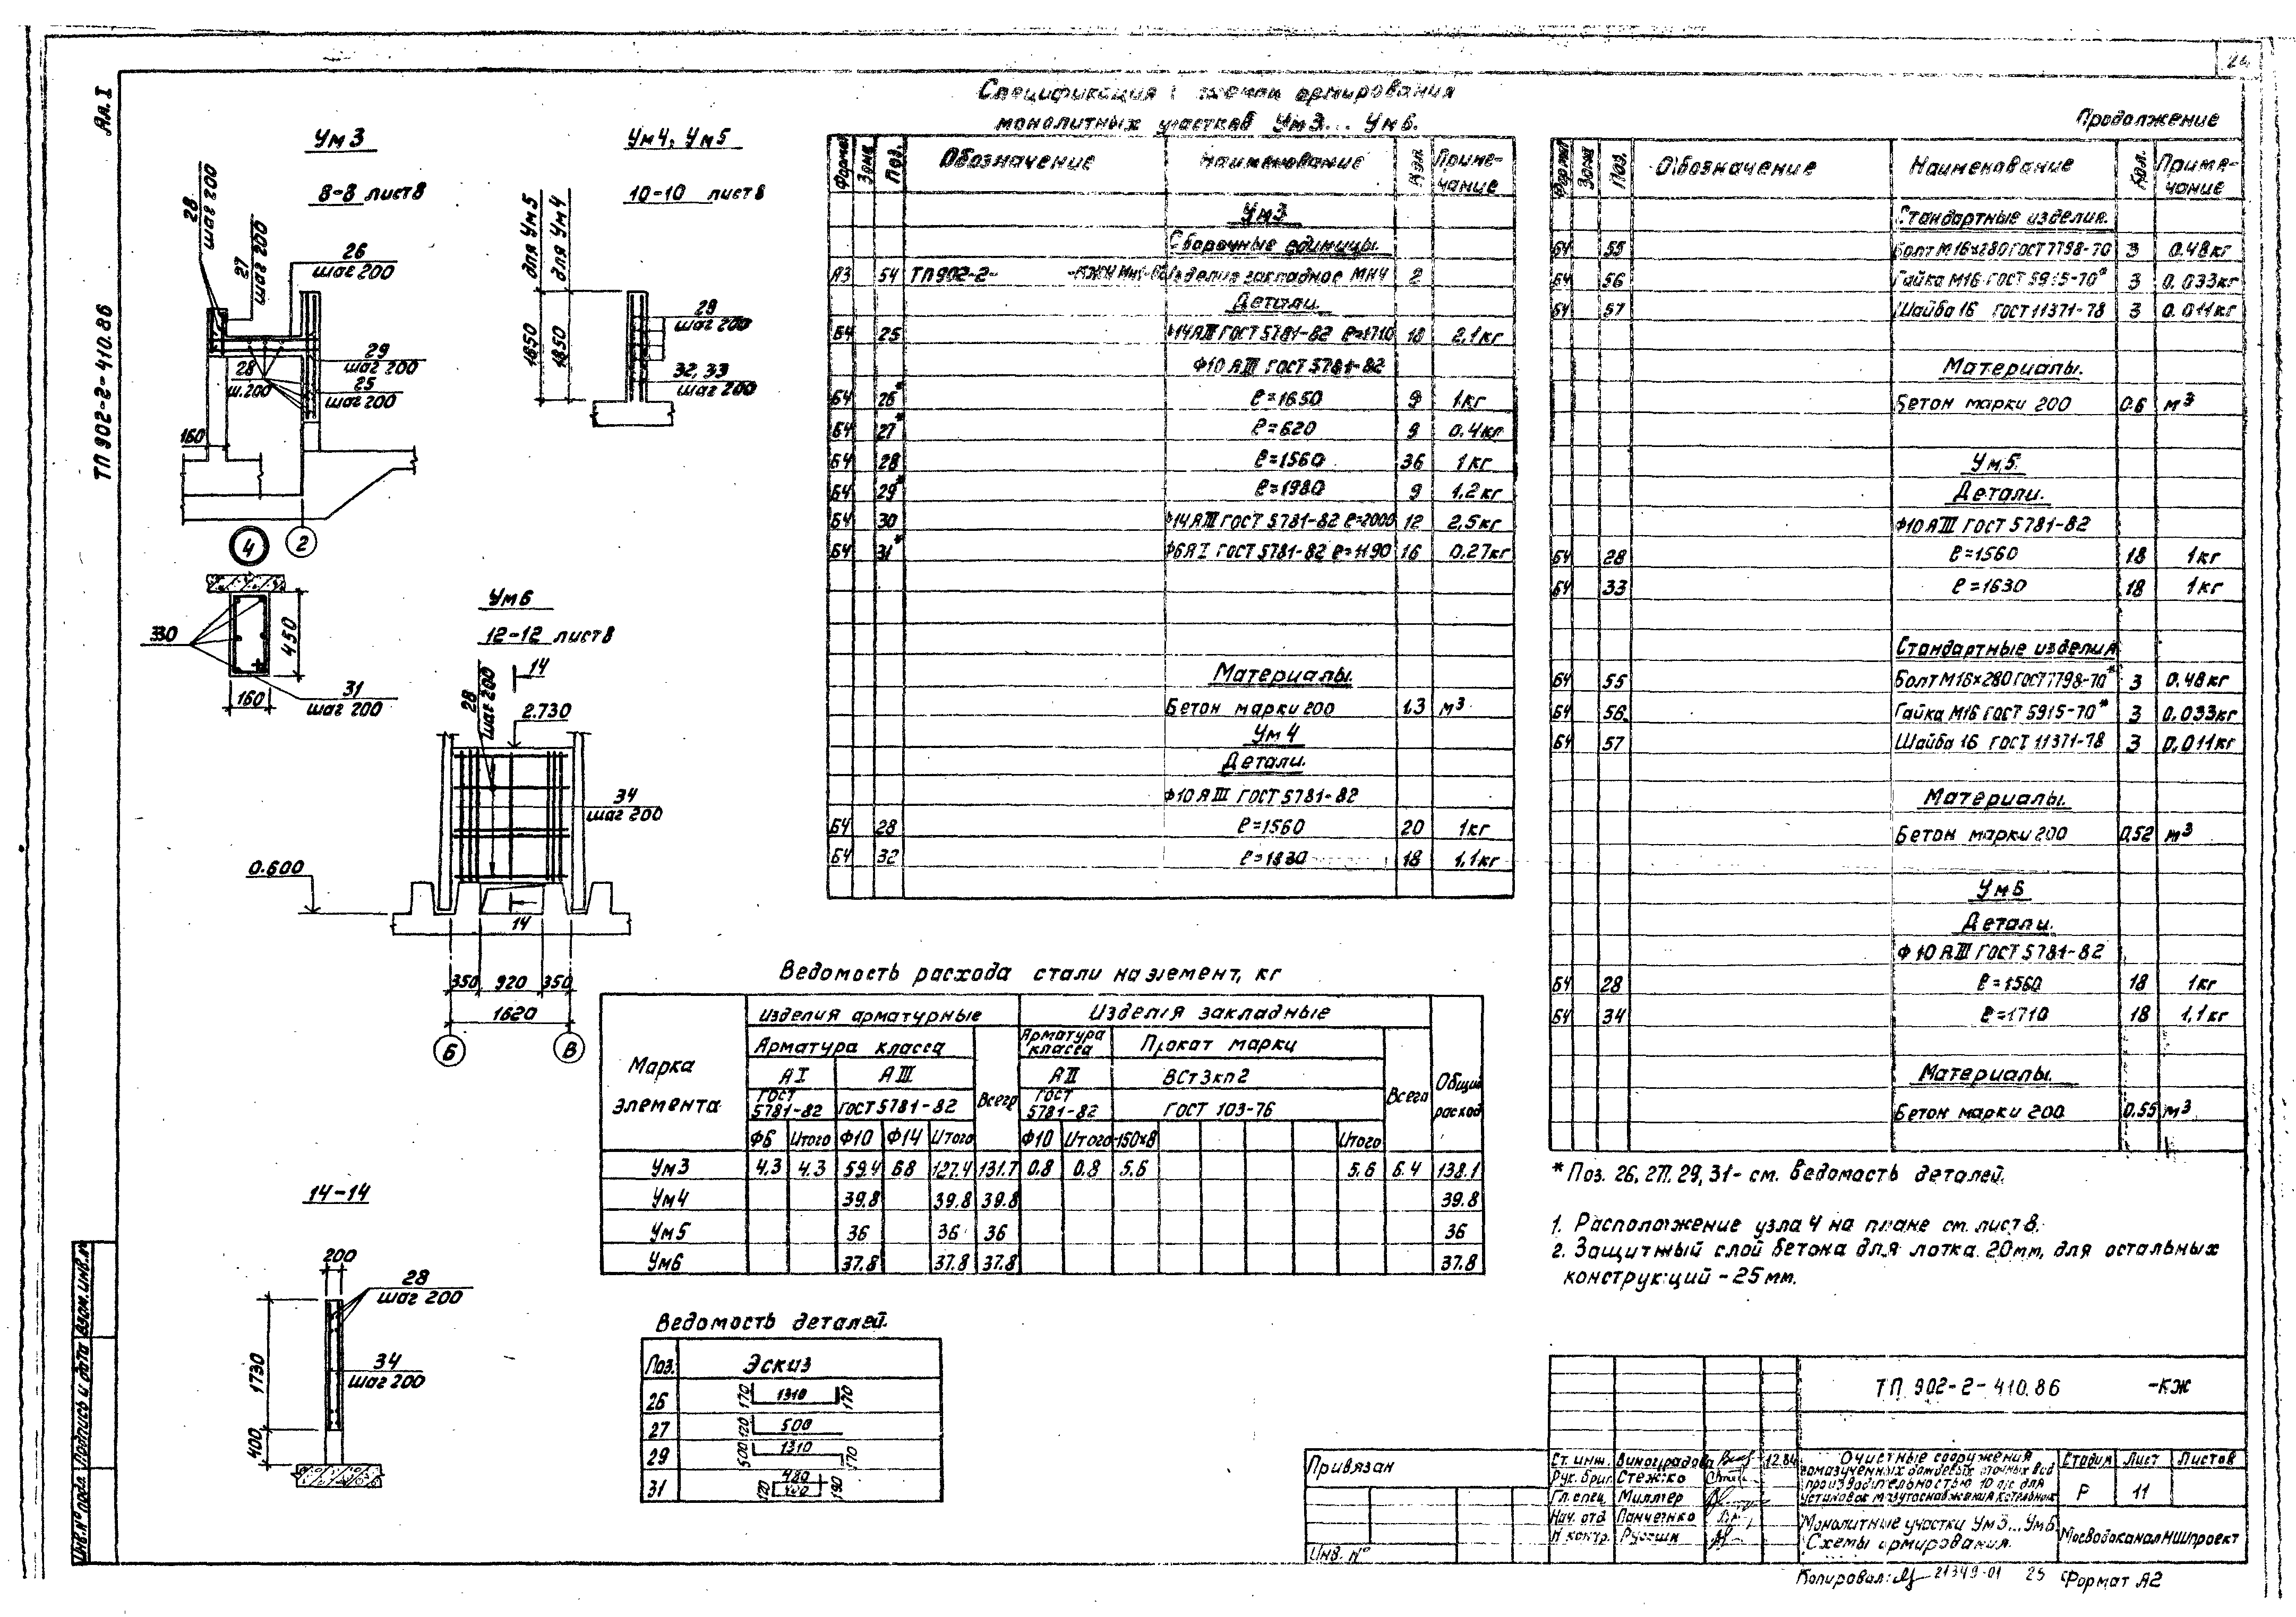 24
Ал. I
ТП 902-2-410.86
Ум 3
8-8 лист 8
28
шаг 200
27
шаг 200
26
шаг 200
29
шаг 200
28
ш.200
25
шаг 200
160
4
2
Ум4, Ум5
10-10 лист 8
для Ум5
для Ум4
1650
1850
28
шаг 200
32, 33
шаг 200
330
450
160
31
шаг 200
Ум6
12-12 лист 8
14
28
шаг 200
2.730
34
шаг 200
0.600
14
350 920 350
1620
Б В
14-14
200
28
шаг 200
1730
34
шаг 200
400
Спецификация армирования
монолитных участков Ум3... Ум6.
Формат Зона Поз. Обозначение Наименование Кол. Приме-чание
Ум3
Сборочные единицы.
А3 54 ТП902-2- Изделие закладное МН4 2
Детали.
Б4 25 Ф14 АIII ГОСТ 5781-82 ℓ=1710 18 2,1кг
Ф10 АIII ГОСТ 5781-82
Б4 26* ℓ=1650 9 1кг
Б4 27* ℓ=620 9 0.4кг
Б4 28 ℓ=1560 36 1кг
Б4 29* ℓ=1980 9 1,2кг
Б4 30 Ф14 АIII ГОСТ 5781-82 ℓ=2000 12 2,5кг
Б4 31* Ф6 А I ГОСТ 5781-82 ℓ=1190 16 0,27кг
Материалы.
Бетон марки 200 1.3 м³
Ум 4
Детали.
Ф10 АIII ГОСТ 5781-82
Б4 28 ℓ=1560 20 1кг
Б4 32 ℓ=1830 18 1,1кг
Продолжение
Формат Зона Поз. Обозначение Наименование Кол. Приме-чание
Стандартные изделия.
Б4 55 Болт М16×280 ГОСТ 7798-70 3 0.48кг
Б4 56 Гайка М16 ГОСТ 5915-70* 3 0,033кг
Б4 57 Шайба 16 ГОСТ 11371-78 3 0.011кг
Материалы.
Бетон марки 200 0.6 м³
Ум.5.
Детали.
Ф10 АIII ГОСТ 5781-82
Б4 28 ℓ=1560 18 1кг
Б4 33 ℓ=1630 18 1кг
Стандартные изделия
Б4 55 Болт М16×280 ГОСТ 7798-70* 3 0.48кг
Б4 56 Гайка М16 ГОСТ 5915-70* 3 0,033кг
Б4 57 Шайба 16 ГОСТ 11371-78 3 0,011кг
Материалы.
Бетон марки 200 0,52 м³
Ум6
Детали.
Ф10 АIII ГОСТ 5781-82
Б4 28 ℓ=1560 18 1кг
Б4 34 ℓ=1710 18 1,1кг
Материалы.
Бетон марки 200 0.55 м³
* Поз. 26, 27, 29, 31 - см. Ведомость деталей.
1. Расположение узла 4 на плане см. лист 8.
2. Защитный слой бетона для лотка 20мм, для остальных
конструкций - 25 мм.
Ведомость расхода стали на элемент, кг
Марка элемента
Изделия арматурные Изделия закладные
Арматура класса Всего Арматура класса Прокат марки Всего Общий расход
А I А III А II ВСт3кп2
ГОСТ 5781-82 ГОСТ 5781-82 ГОСТ 5781-82 ГОСТ 103-76
Ф6 Итого Ф10 Ф14 Итого Ф10 Итого -150×8 Итого
Ум3 4.3 4.3 59.4 68 127.4 131.7 0.8 0.8 5.6 5.6 6.4 138.1
Ум4 39.8 39.8 39.8 39.8
Ум5 36 36 36 36
Ум6 37.8 37.8 37.8 37.8
Ведомость деталей.
Поз. Эскиз
26 170 1310 170
27 120 500
29 500 1310 170
31 120 480 190
Инв.№ подл. Подпись и дата Взам.инв.№
Привязан
Инв. №
ТП 902-2-410.86 -КЖ
Ст. инж. Виноградова 12.84
Рук. бриг. Стежко
Гл. спец. Миллер
Нач. отд. Панченко
Н контр.
Очистные сооружения
замазученных дождевых сточных вод
производительностью 10 л/с для
установок мазутоснабжения котельных
Стадия Лист Листов
Р 11
Монолитные участки Ум3...Ум6.
Схемы армирования.
МосводоканалНИИпроект
Копировал: 21349-01 25 Формат А2